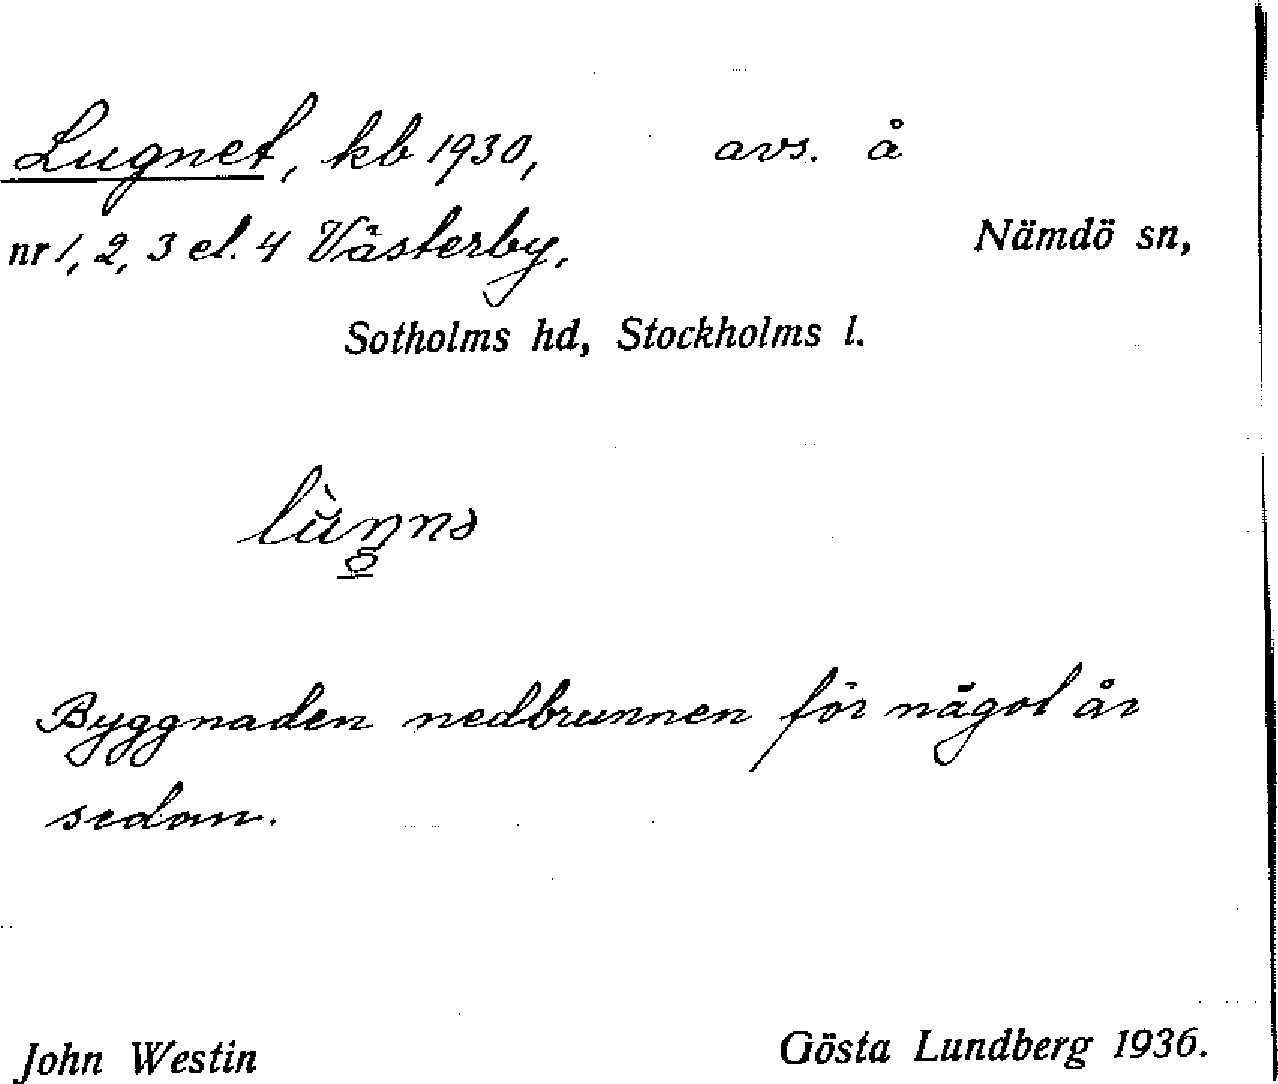 Lugnet, kb 1930, avs. å
nr 1, 2, 3 el. 4 Västerby, Nämdö sn,
Sotholms hd, Stockholms l.
Byggnaden nedbrunnen för något år
sedan.
John Westin Gösta Lundberg 1936.